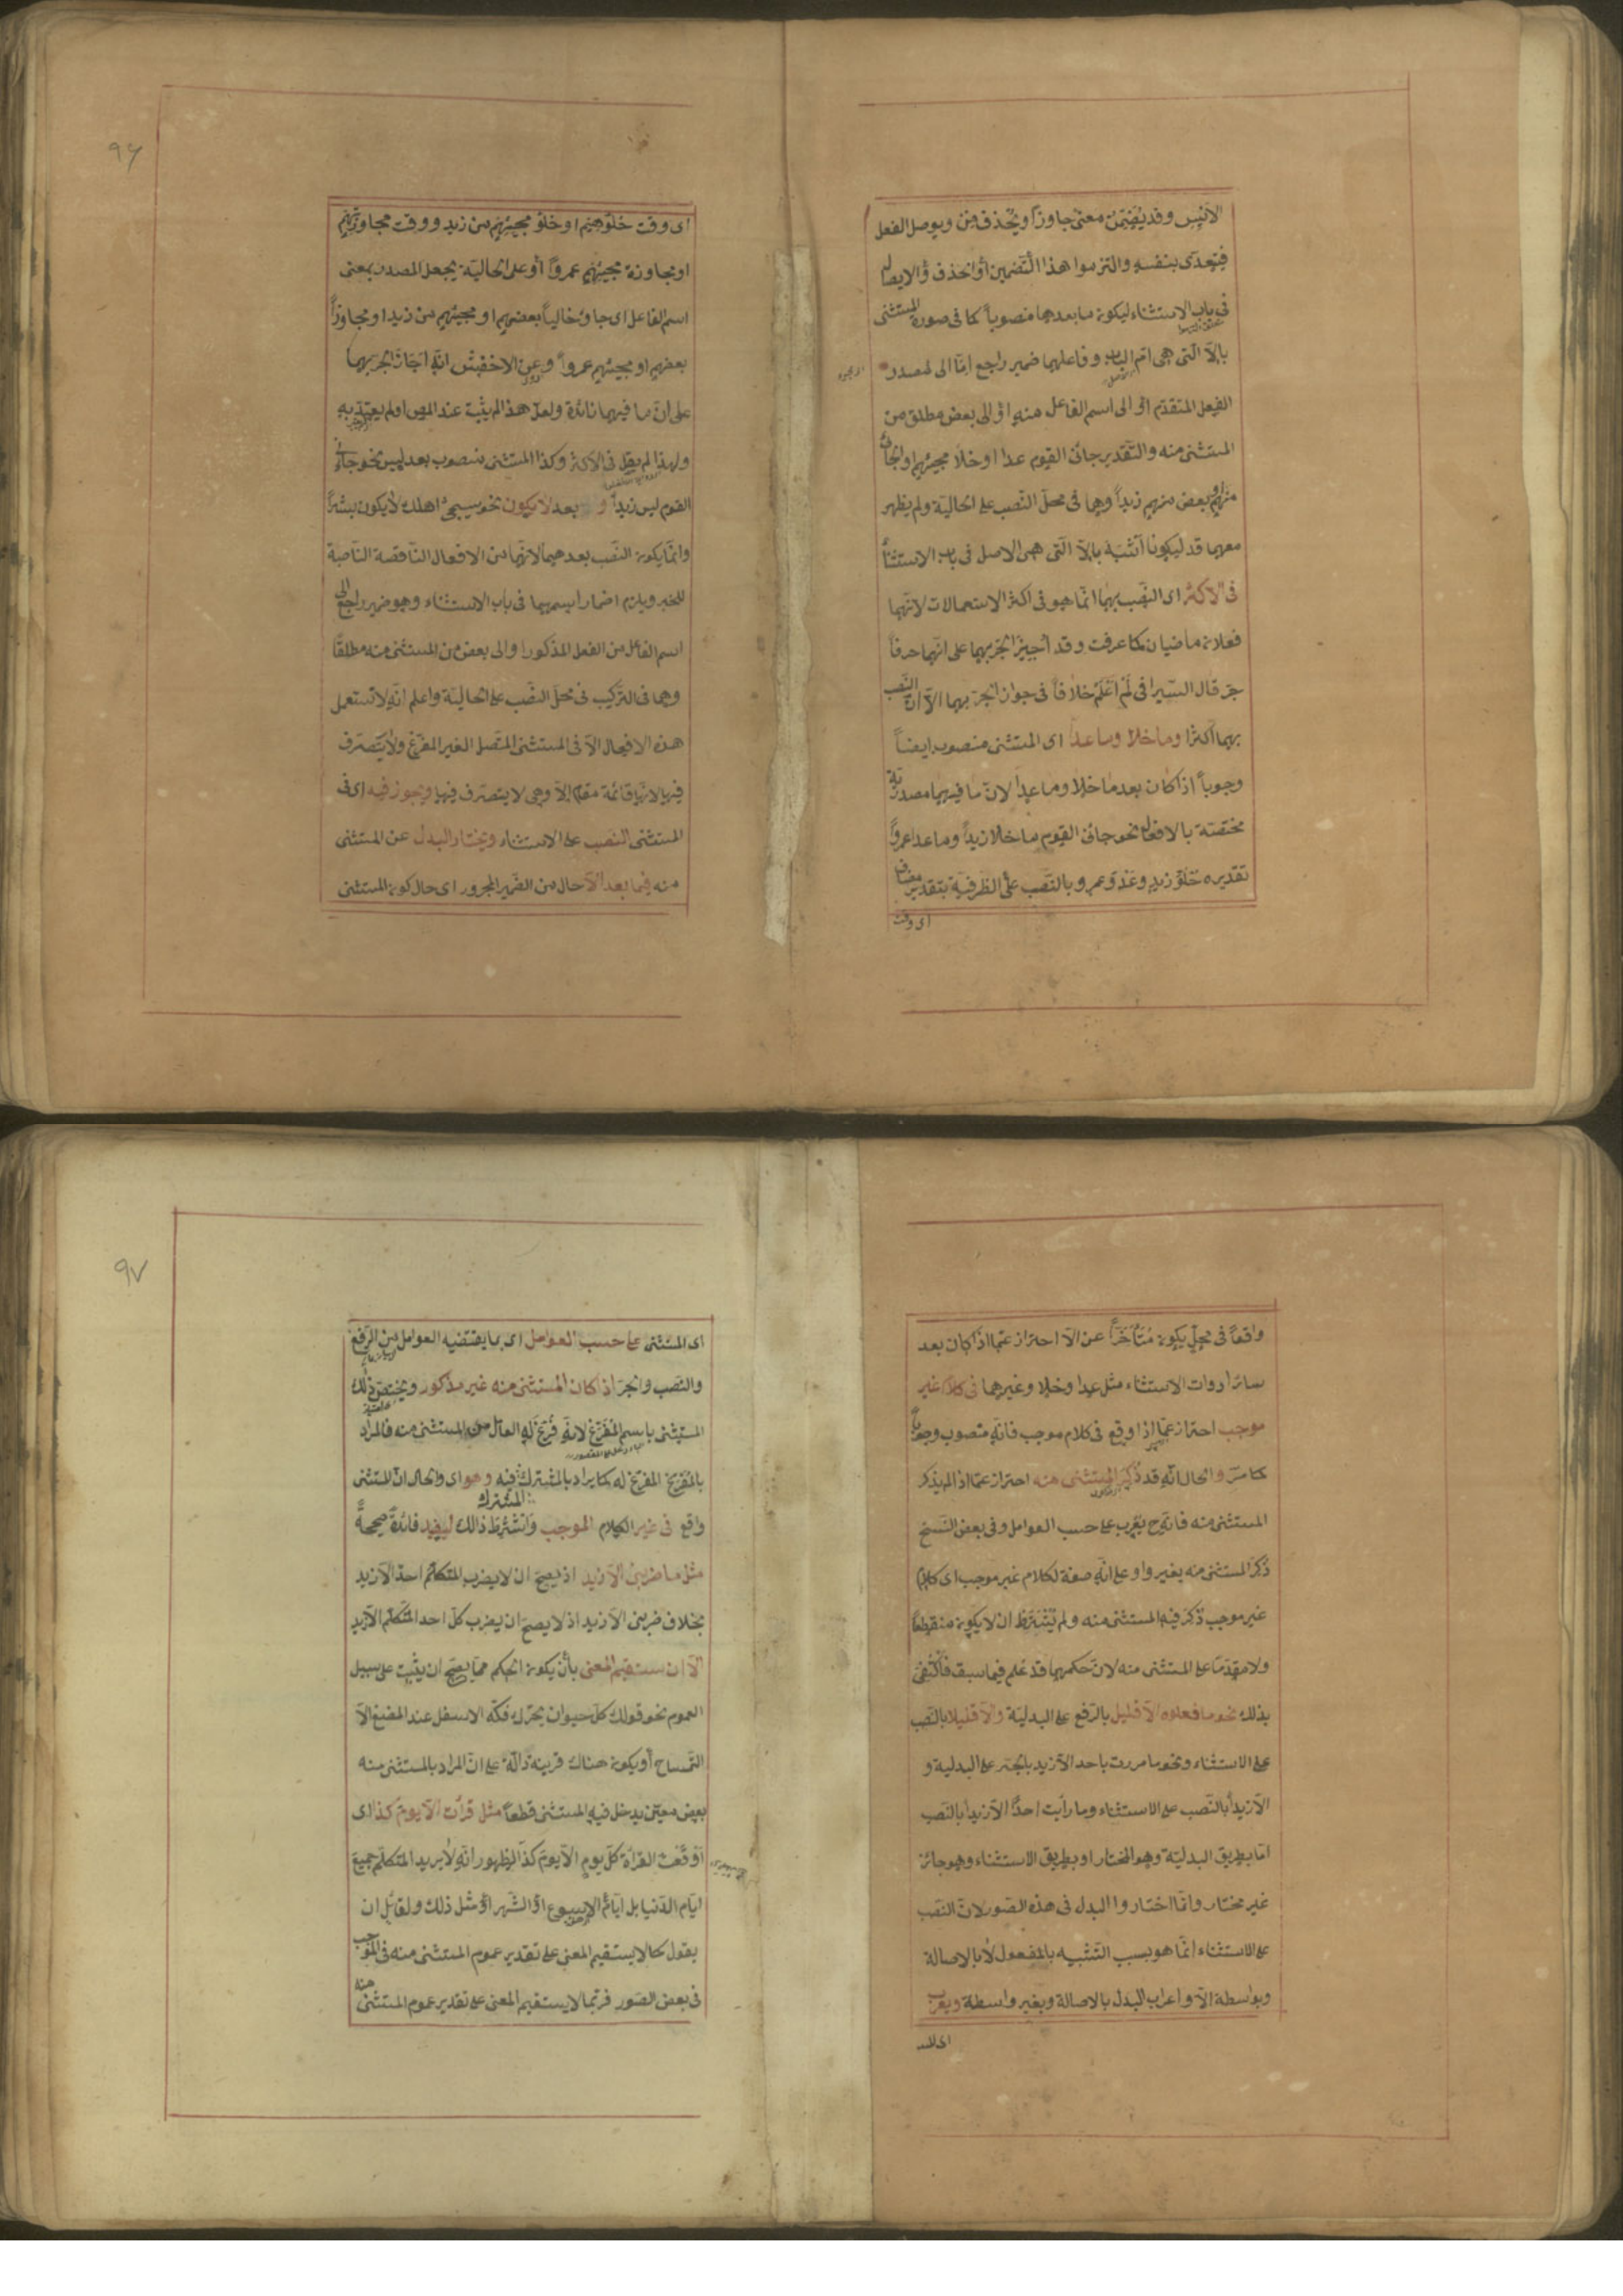 الانيس وقد يضمن معنى جاوز او يحذف من ويوصل الفعل
فيتعدى بنفسه والتزموا هذا التضمين او الحذف والايصال
فى باب الاستثناء ليكون ما بعدهما منصوبا كما فى صورة المستثنى
بالا التى هى ام الباب وفاعلهما ضمير راجع اما الى مصدر
الفعل المتقدم او الى اسم الفاعل منه او الى بعض مطلق من
المستثنى منه والتقدير جائنى القوم عدا او خلا مجيئهم او الجائى
منهم او بعض منهم زيدا وهما فى محل النصب على الحالية ولم يظهر
معهما قد ليكونا اشبه بالا التى هى الاصل فى باب الاستثناء
فى الاكثر اى النصب بهما انما هو فى اكثر الاستعمالات لانهما
فعلان ماضيان كما عرفت وقد اجيز الجر بهما على انهما حرفا
جر قال السيرافى لم اعلم خلافا فى جواز الجر بهما الا ان النصب
بهما اكثر وما خلا وما عدا اى المستثنى منصوب ايضا
وجوبا اذا كان بعد ما خلا وما عدا لان ما فيهما مصدرية
مختصة بالافعال نحو جائنى القوم ما خلا زيدا وما عدا عمروا
تقديره خلو زيد وعدو عمرو بالنصب على الظرفية بتقدير مضاف
اى وقت
٩٦
اى وقت خلوهم او خلو مجيئهم من زيد ووقت مجاوزتهم
او مجاوزة مجيئهم عمروا او على الحالية بجعل المصدر بمعنى
اسم الفاعل اى جاؤ خاليا بعضهم او مجيئهم من زيد او مجاوزا
بعضهم او مجيئهم عمروا وعن الاخفش انه اجاز الجر بهما
على ان ما فيهما زائدة ولعل هذا لم يثبت عند المص او لم يعتد به
ولهذا لم يقل فى الاكثر وكذا المستثنى منصوب بعد ليس نحو جائنى
القوم ليس زيدا و بعد لا يكون نحو سيجئ اهلك لا يكون بشرا
وانما يكون النصب بعدهما لانهما من الافعال الناقصة الناصبة
للخبر ويلزم اضمار اسمهما فى باب الاستثناء وهو ضمير راجع الى
اسم الفاعل من الفعل المذكور او الى بعض من المستثنى منه مطلقا
وهما فى التركيب فى محل النصب على الحالية واعلم انه لا تستعمل
هذه الافعال الا فى المستثنى المتصل الغير المفرغ ولا يتصرف
فيها لانها قائمة مقام الا وهى لا يتصرف فيها ويجوز فيه اى فى
المستثنى النصب على الاستثناء ويختار البدل عن المستثنى
منه فيما بعد الا حال من الضمير المجرور اى حال كون المستثنى
واقعا فى محل يكون متأخرا عن الا احتراز عما اذا كان بعد
سائر ادوات الاستثناء مثل عدا وخلا وغيرهما فى كلام غير
موجب احتراز عما اذا وقع فى كلام موجب فانه منصوب وجوبا
كما مر والحال انه قد ذكر المستثنى منه احتراز عما اذا لم يذكر
المستثنى منه فانه ح يعرب على حسب العوامل وفى بعض النسخ
ذكر المستثنى منه بغير واو على انه صفة لكلام غير موجب اى كلام
غير موجب ذكر فيه المستثنى منه ولم يشترط ان لا يكون منقطعا
ولا مقدما على المستثنى منه لان حكمهما قد علم فيما سبق فاكتفى
بذلك نحو ما فعلوه الا قليل بالرفع على البدلية والا قليلا بالنصب
على الاستثناء ونحو ما مررت باحد الا زيد بالجر على البدلية و
الا زيدا بالنصب على الاستثناء وما رايت احدا الا زيدا بالنصب
اما بطريق البدلية وهو المختار او بطريق الاستثناء وهو جائز
غير مختار وانما اختاروا البدل فى هذه الصور لان النصب
على الاستثناء انما هو بسبب التشبيه بالمفعول لا بالاصالة
وبواسطة الا واعراب البدل بالاصالة وبغير واسطة ويعرب
اى المستـ
٩٧
اى المستثنى على حسب العوامل اى بما يقتضيه العوامل من الرفع
والنصب والجر اذا كان المستثنى منه غير مذكور ويختص ذلك
المستثنى باسم المفرغ لانه فرغ له العامل من المستثنى منه فالمراد
بالمفرغ المفرغ له كما يراد بالمشترك المشترك فيه وهو اى والحال ان المستثنى
واقع فى غير الكلام الموجب واشترط ذالك ليفيد فائدة صحيحة
مثل ما ضربنى الا زيد اذ يصح ان لا يضرب المتكلم احد الا زيد
بخلاف ضربنى الا زيد اذ لا يصح ان يضرب كل احد المتكلم الا زيد
الا ان يستقيم المعنى بأن يكون الحكم مما يصح ان يثبت على سبيل
العموم نحو قولك كل حيوان يحرك فكه الاسفل عند المضغ الا
التمساح او يكون هناك قرينة دالة على ان المراد بالمستثنى منه
بعض معين يدخل فيه المستثنى قطعا مثل قرأت الا يوم كذا اى
اوقعت القراة كل يوم الا يوم كذا لظهور انه لا يريد المتكلم جميع
ايام الدنيا بل ايام الاسبوع او الشهر او مثل ذلك ولقائل ان
يقول كما لا يستقيم المعنى على تقدير عموم المستثنى منه فى الموجب
فى بعض الصور فربما لا يستقيم المعنى على تقدير عموم المستثنى منه